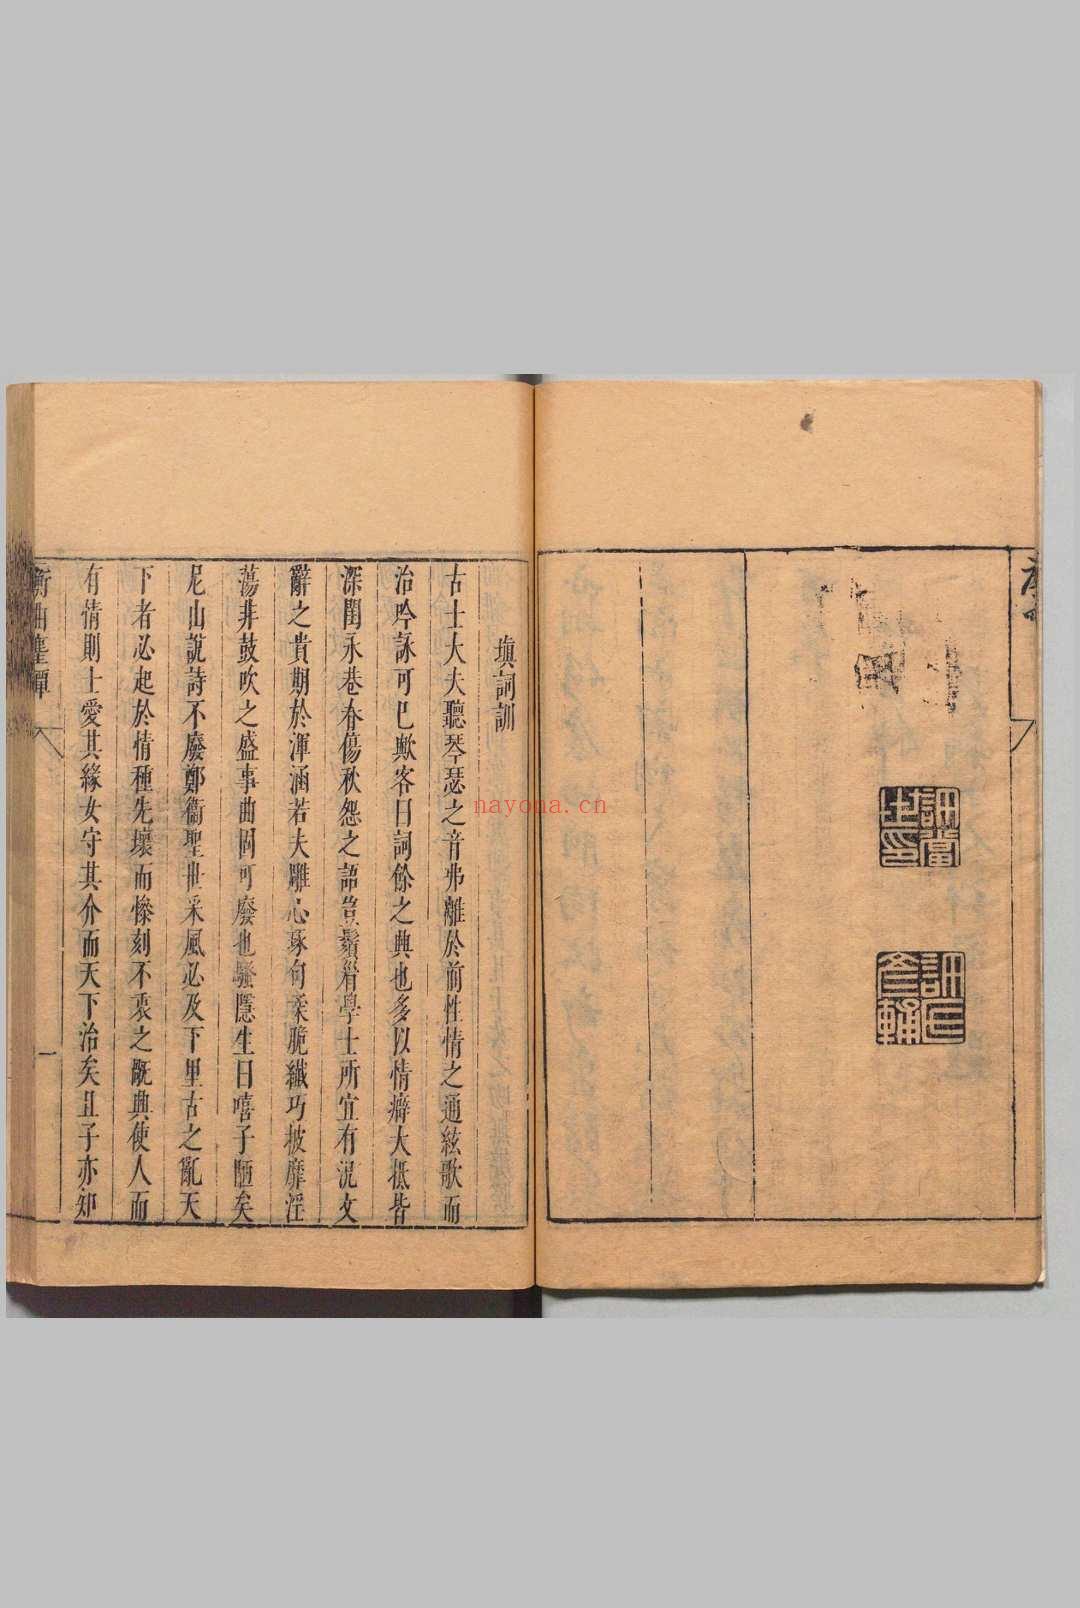 填詞訓
古士大夫聽琴瑟之音弗離於前性情之通絃歌而
治吟詠可已歟客曰詞餘之興也多以情癖大抵皆
深閨永巷春傷秋怨之語豈鬚眉學士所宜有況文
辭之貴期於渾涵若夫雕心琢句柔脆纖巧披靡淫
蕩非鼓吹之盛事曲固可廢也騷隱生曰嘻子陋矣
尼山說詩不廢鄭衛聖世采風必及下里古之亂天
下者必起於情種先壞而慘刻不衷之厩興使人而
有情則士愛其緣女守其介而天下治矣且子亦知
衡曲麈譚
一
nayona.cn